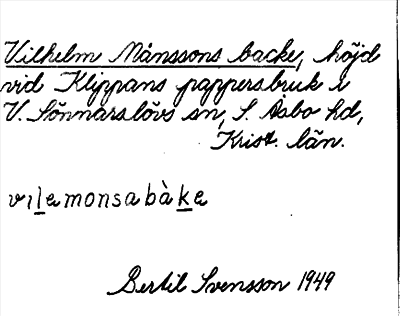 Vilhelm Månssons backe, höjd
vid Klippans pappersbruk i
V. Sönnarslövs sn, S. Åsbo hd,
Krist. län.
vılemonsabàke
Bertil Svensson 1949